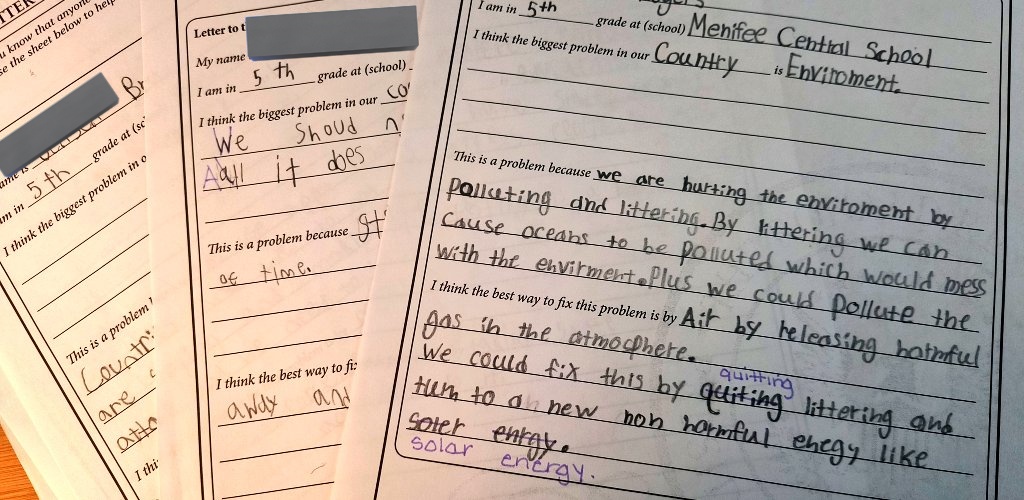 u know that anyone
se the sheet below to help
Br
am in 5th grade at (sc
I think the biggest problem in o
This is a problem
Countri
are
I thi
Letter to t
My name
I am in 5 th grade at (school)
I think the biggest problem in our co
We shoud n
Aall it does
This is a problem because
of time.
I think the best way to fi
away and
I am in 5th grade at (school) Menifee Central School
I think the biggest problem in our Country is Enviroment.
This is a problem because we are hurting the enviroment by
Polluting and littering. By littering we can
cause oceans to be polluted which would mess
with the envirment. Plus we could pollute the
I think the best way to fix this problem is by Air by releasing harmful
gas in the atmocphere.
quitting
We could fix this by quiting littering and
turn to a new non harmful enegy like
soler enrgy.
solar energy.